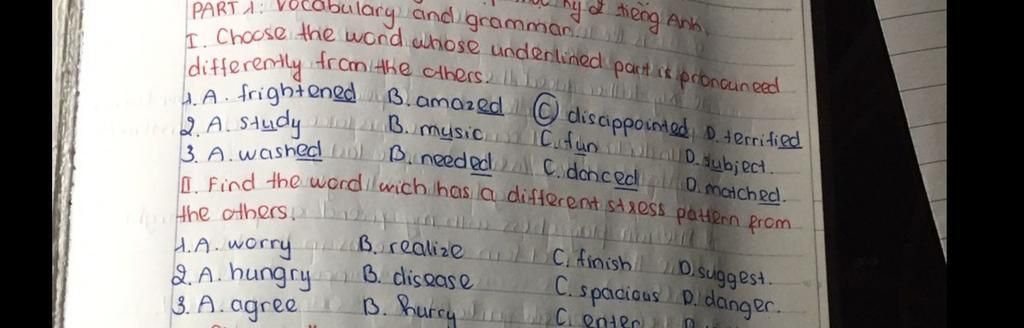 PART 1: Vocabulary and grammar
kỳ 2 tiếng Anh
I. Choose the word whose underlined part is pronounced
differently from the others.
1. A. frightened B. amazed C. disappointed D. terrified
2. A. study B. music C. fun D. subject.
3. A. washed B. needed C. danced D. matched.
II. Find the word wich has a different stress pattern from
the others.
1. A. worry B. realize C. finish D. suggest.
2. A. hungry B. disease C. spacious D. danger.
3. A. agree B. hurry C. enter